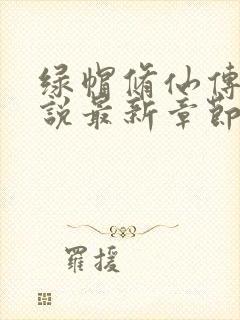 绿帽脩仙傳
說最新章節
羅援